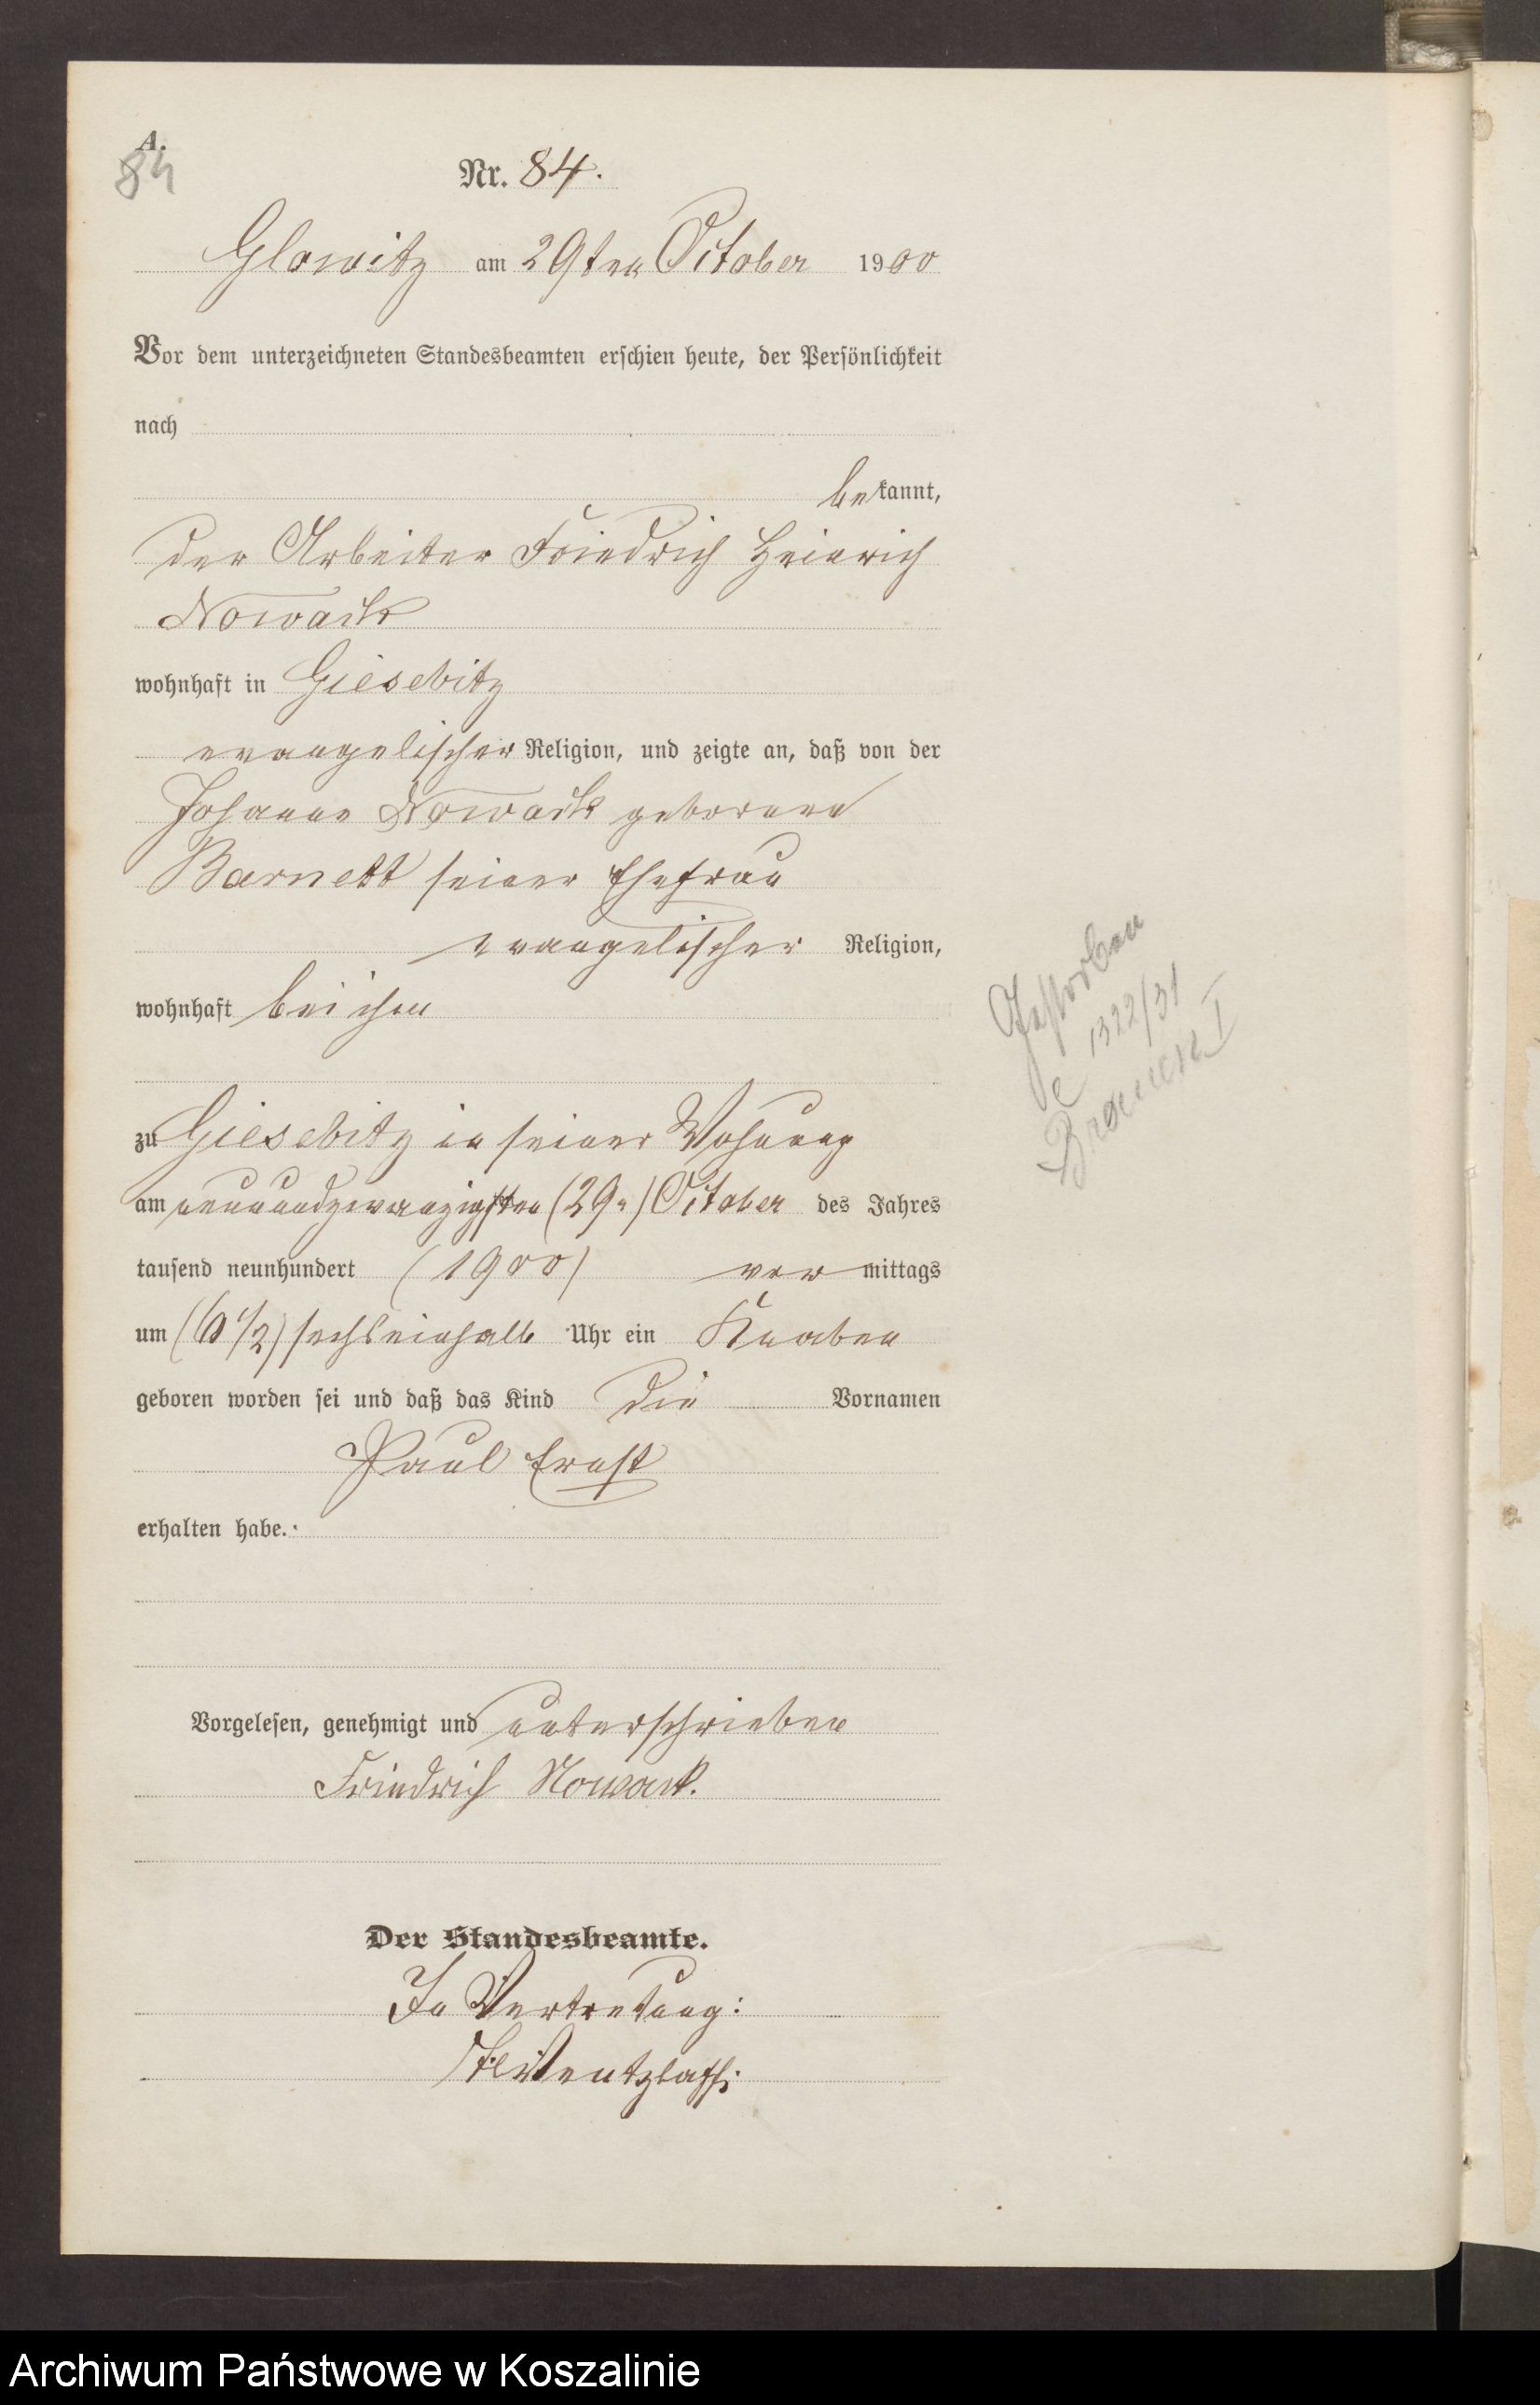 A.
84
Nr. 84.
Glowitz am 29ten October 1900
Vor dem unterzeichneten Standesbeamten erschien heute, der Persönlichkeit
nach
bekannt,
der Arbeiter Friedrich Heinrich
Nowack
wohnhaft in Giesebitz
evangelischer Religion, und zeigte an, daß von der
Johanne Nowack geborenen
Barnett seiner Ehefrau
evangelischer Religion,
wohnhaft bei ihm
zu Giesebitz in seiner Wohnung
am neunundzwanzigsten (29n) October des Jahres
tausend neunhundert (1900) vor mittags
um (6 1/2) sechseinhalb Uhr ein Knaben
geboren worden sei und daß das Kind die Vornamen
Paul Ernst
erhalten habe.
Vorgelesen, genehmigt und unterschrieben
Friedrich Nowack.
Der Standesbeamte.
In Vertretung:
Wentzlaff.
Gestorben
1322/31
I
Archiwum Państwowe w Koszalinie